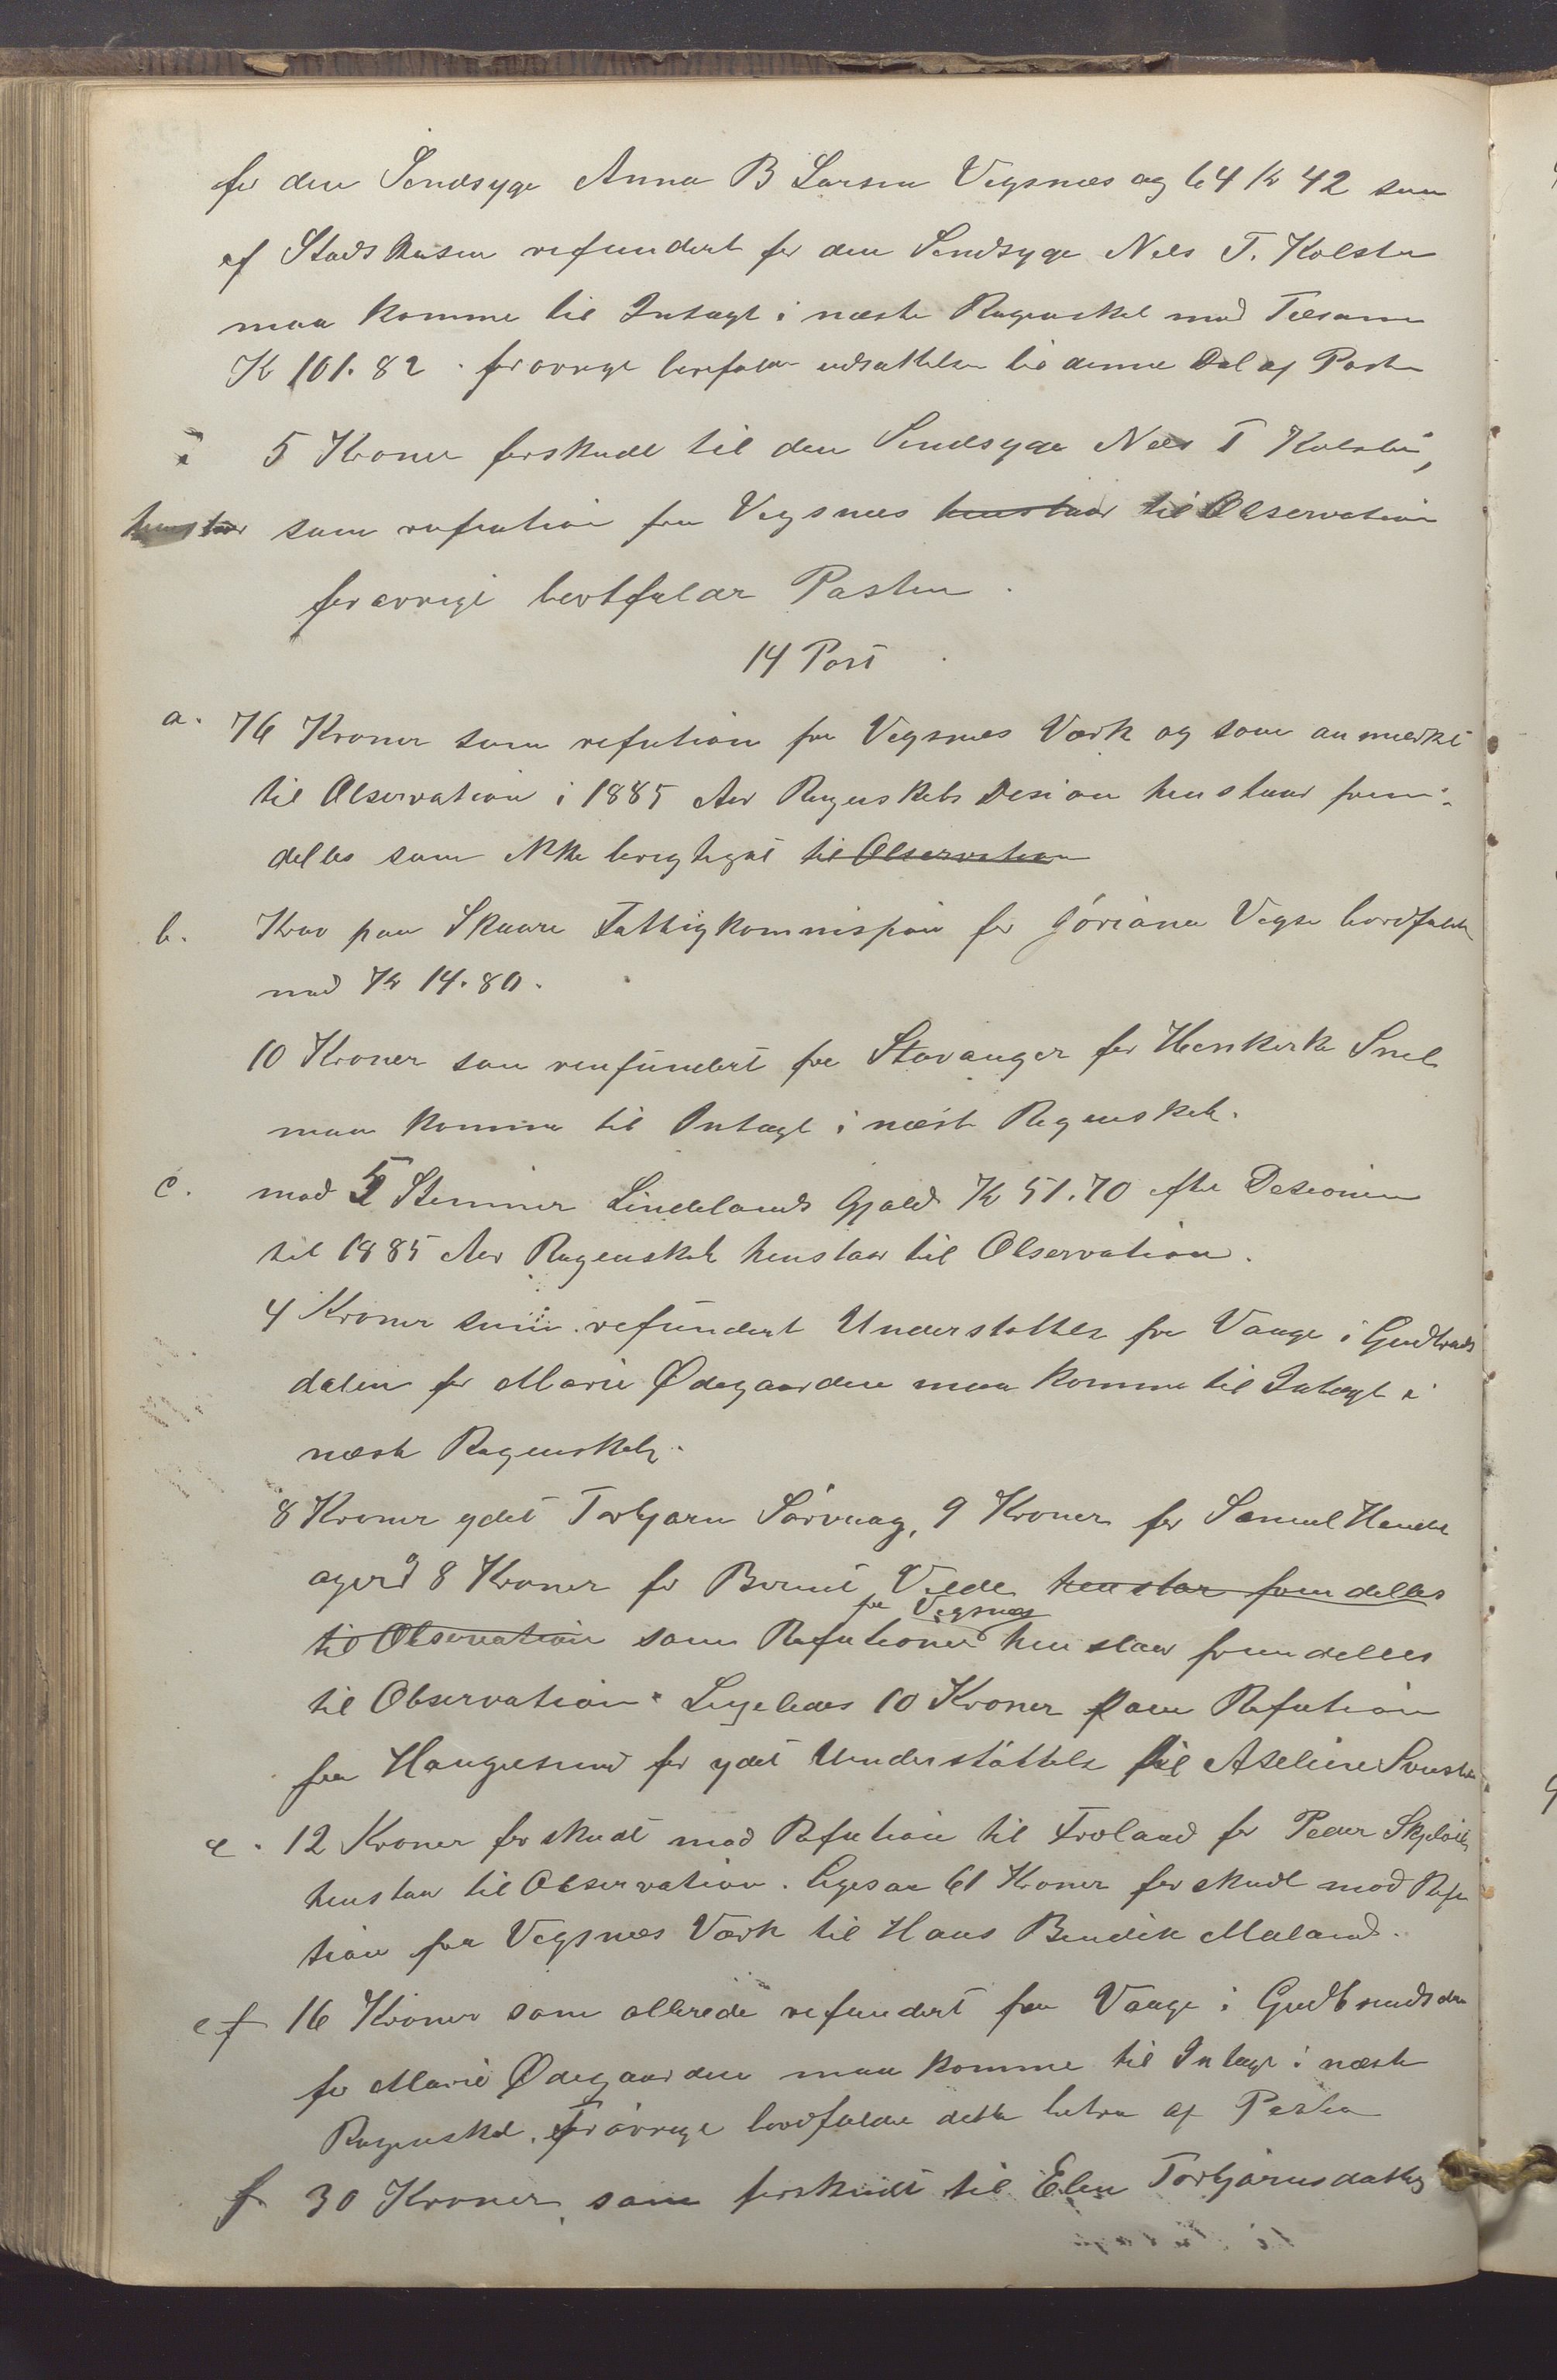 for den Sindsyge Anna B Larsen Vigsnæs og 64 Kr 42 som
af Stadskasen refundert for den Sindsyge Nels T. Kolstø
maa komme til Intægt i næste Regnskel med Tilsam
Kr 101.82. forøvrigt bortfalder udsættelsen til denne Del af Posten
i 5 Kroner forskudt til den Sindsyge Nels T Kolstø,
henstaar som refution fra Vigsnæs henstaar til Observation
forøvrigt bortfalder Posten.
14 Post
a. 76 Kroner som refution fra Vigsnæs Værk og som anmerkt
til Observation i 1885 Aar Regnskabs Desion henstaar frem-
delles som ikke berigtiget til Observation
b. Krav paa Skaare Fattigkommission for Jöriana Vigse bortfalder
med Kr 14.80.
10 Kroner som renfundert fra Stavanger for Henkirke Snel
maa komme til Intægt i næste Regenskab.
c. mod 5 Stemmer Lindelands Gjæld Kr 51.70 efter Desionen
til 1885 Aar Regenskab henstaar til Observation.
4 Kroner som refundert Understøttelse fra Vange i Gudbrands
dalen for Marie Ødegaarden maa komme til Intægt i
næste Regenskab.
8 Kroner ydet Torbjørn Sørvaag, 9 Kroner for Samuel Hende
ager 8 Kroner for Bernt Velde henstar fremdelles
fra Vigsnæs
til Observation som Refutioner henstaar fremdelles
til Observation. Ligeledes 10 Kroner som Refution
fra Haugesund for ydet Understöttelse til Aseline
e. 12 Kroner forskudt mod Refution til Froland for Peder
henstaar til Observation. ligesaa 61 Kroner forskudt mod Refu
tion fra Vigsnæs Værk til Hans Bendik Mæland.
ef 16 Kroner som allerede refundert fra Vange i Gudbrandsdn
for Marie Ødegaarden maa komme til Intægt i næste
Regnskab. forøvrigt bortfalder dette litra af Posten
f 30 Kroner som forskudt til Elen Torbjørnsdatter